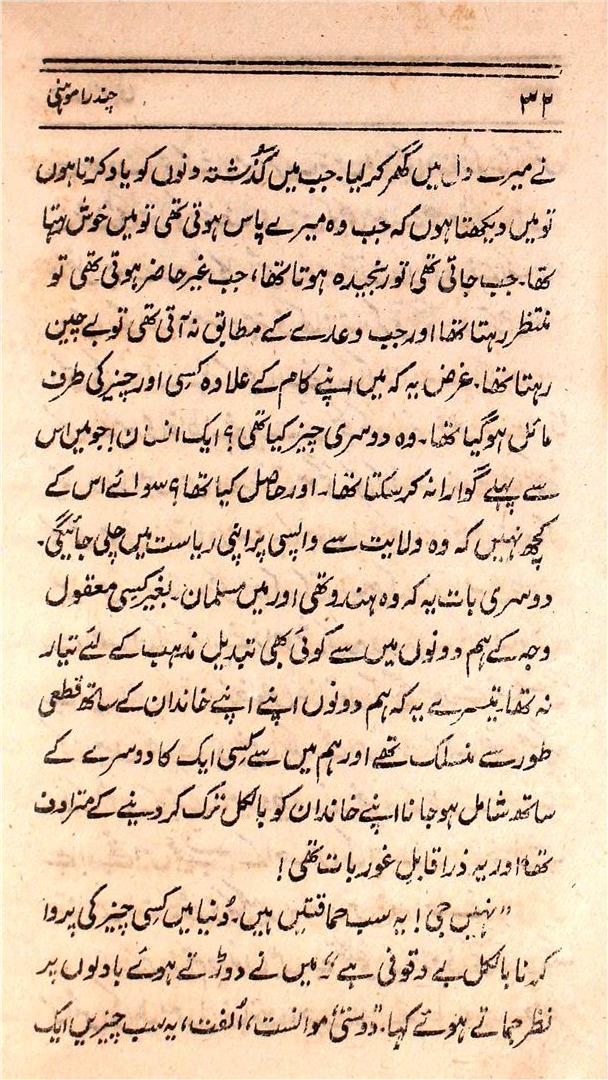 ۳۲ چندرا موہنی
نے میرے دل میں گھر کر لیا۔ جب میں گذشتہ دنوں کو یاد کرتا ہوں
تو میں دیکھتا ہوں کہ جب وہ میرے پاس ہوتی تھی تو میں خوش رہتا
تھا۔ جب جاتی تھی تو رنجیدہ ہوتا تھا، جب غیر حاضر ہوتی تھی تو
منتظر رہتا تھا اور جب وعدے کے مطابق نہ آتی تھی تو بے چین
رہتا تھا۔ غرض یہ کہ میں اپنے کام کے علاوہ کسی اور چیز کی طرف
مائل ہو گیا تھا۔ وہ دوسری چیز کیا تھی؟ ایک انسان! جو میں اس
سے پہلے گوارا نہ کر سکتا تھا۔ اور حاصل کیا تھا؟ سوائے اس کے
کچھ نہیں کہ وہ ولایت سے واپسی پر اپنی ریاست میں چلی جائیگی۔
دوسری بات یہ کہ وہ ہندو تھی اور میں مسلمان۔ بغیر کسی معقول
وجہ کے ہم دونوں میں سے کوئی بھی تبدیل مذہب کے لئے تیار
نہ تھا۔ تیسرے یہ کہ ہم دونوں اپنے اپنے خاندان کے ساتھ قطعی
طور سے منسلک تھے اور ہم میں سے کسی ایک کا دوسرے کے
ساتھ شامل ہو جانا اپنے خاندان کو بالکل ترک کر دینے کے مترادف
تھا! اور یہ ذرا قابلِ غور بات تھی!
”نہیں جی! یہ سب حماقتیں ہیں۔ دُنیا میں کسی چیز کی پروا
کرنا بالکل بے وقوفی ہے“ میں نے دوڑتے ہوئے بادلوں پر
نظر جماتے ہوئے کہا۔ ”دوستی، موانست، اُلفت، یہ سب چیزیں ایک